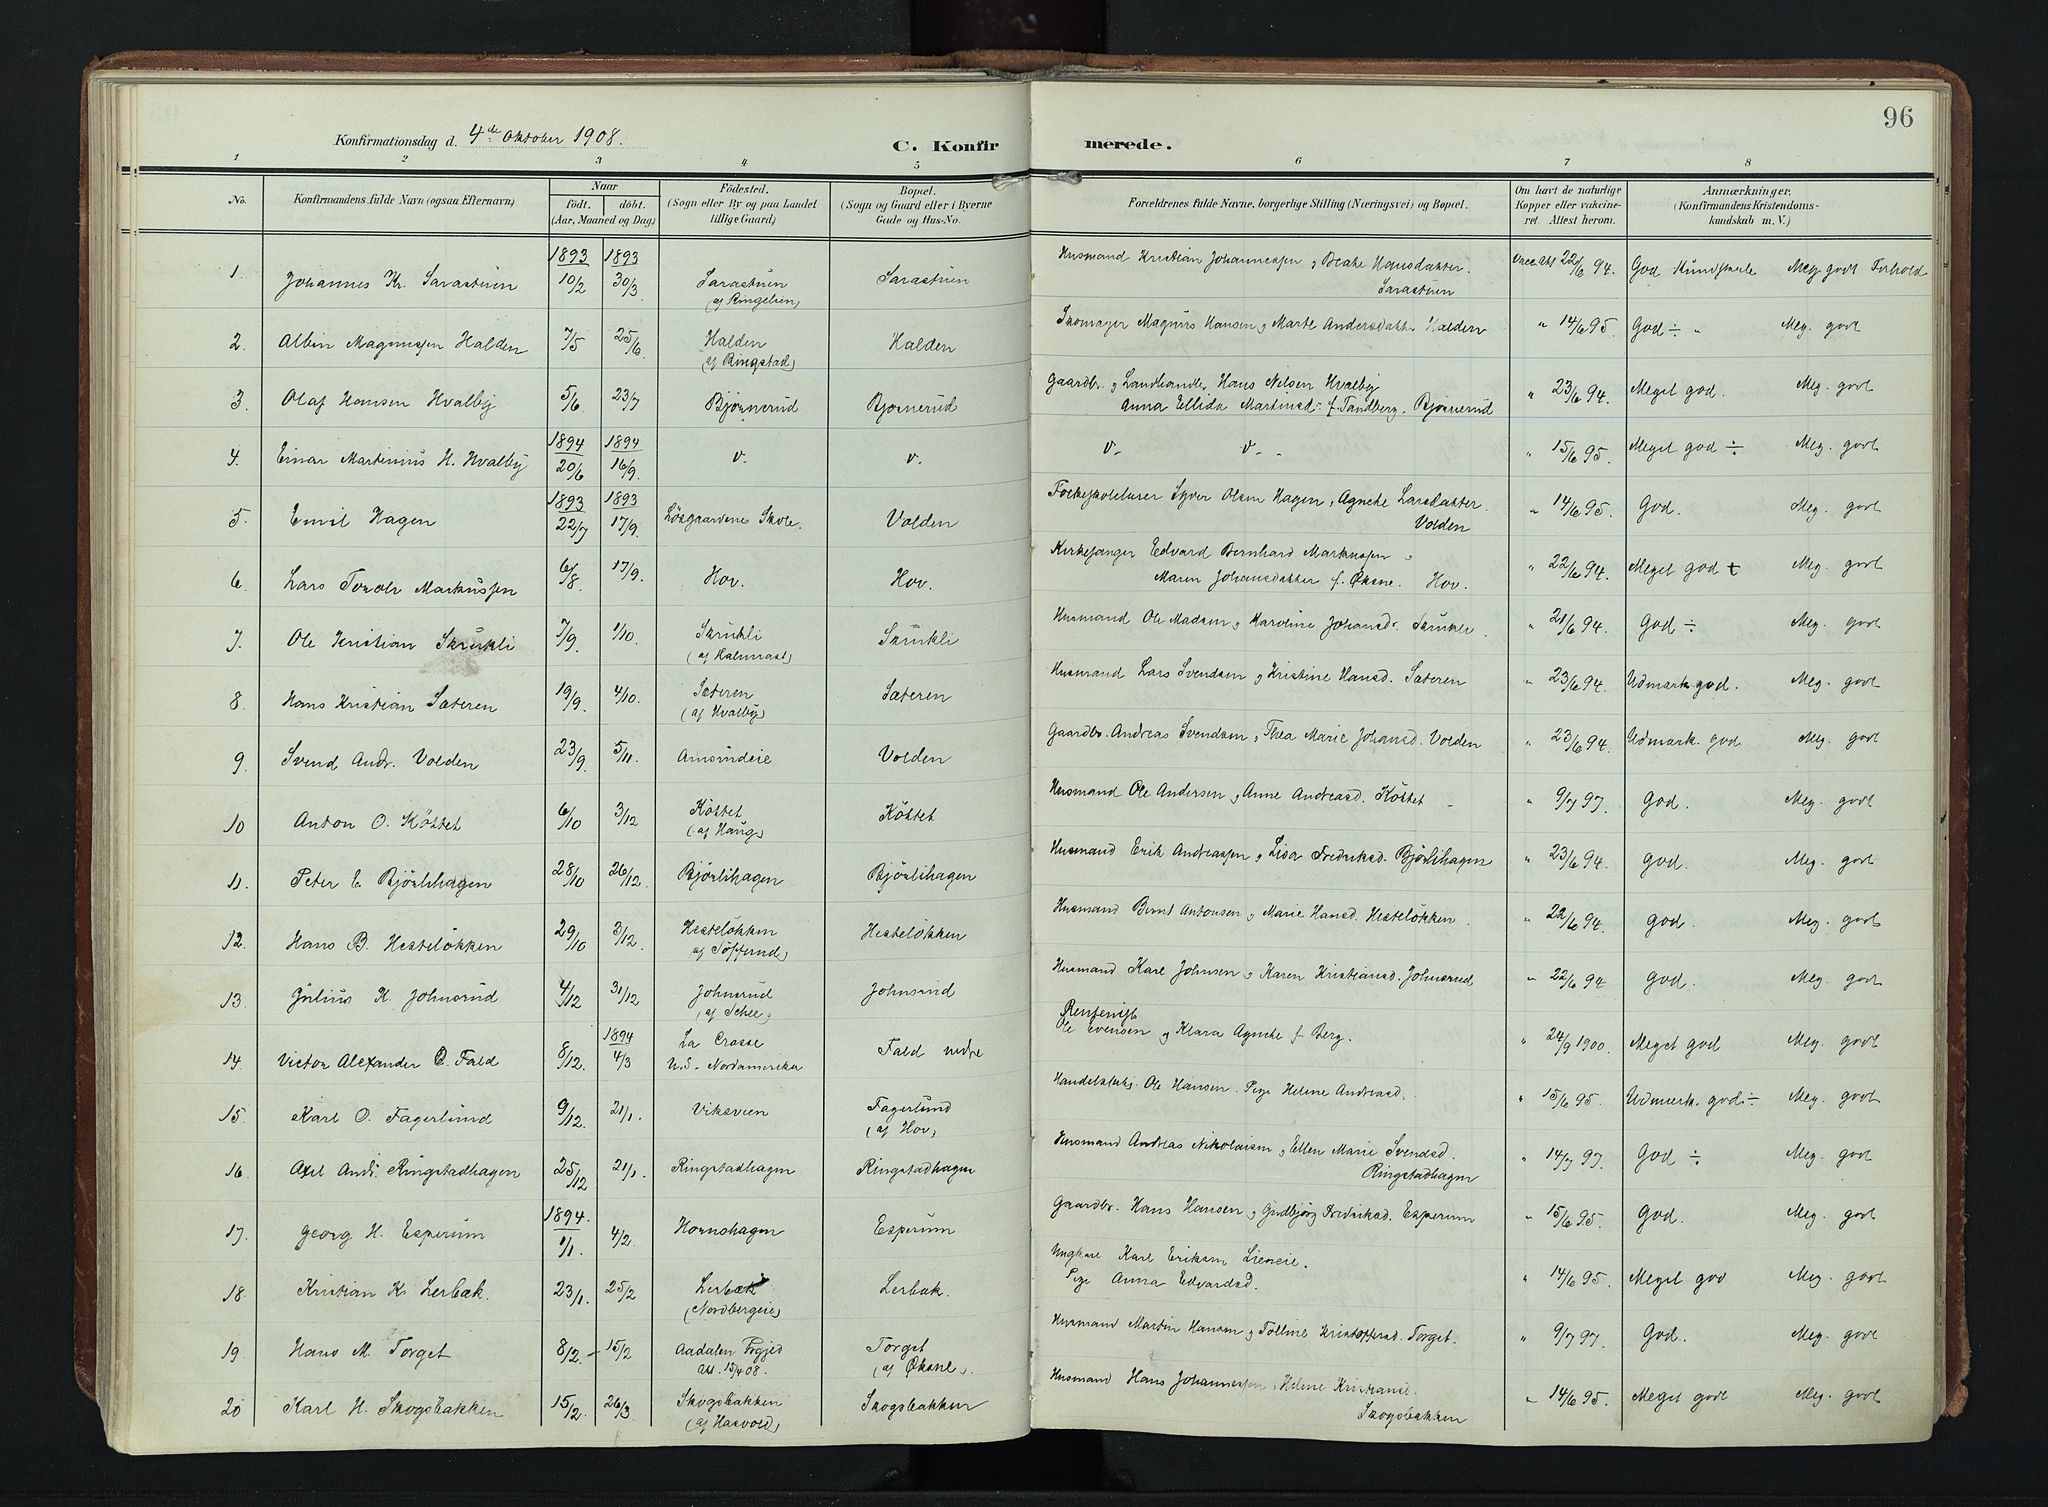 96
Konfirmationsdag d. 4de Oktober 1908.
C. Konfirmerede.
1 2 3 4 5 6 7 8
No.
Konfirmandens fulde Navn (ogsaa Efternavn)
Naar
født. døbt.
(Aar, Maaned og Dag)
Fødested.
(Sogn eller By og paa Landet tillige Gaard)
Bopæl.
(Sogn og Gaard eller i Byerne Gade og Hus-No.
Forældrenes fulde Navne, borgerlige Stilling (Næringsvei) og Bopæl.
Om havt de naturlige Kopper eller vakcineret. Attest herom.
Anmærkninger.
(Konfirmandens Kristendomskundskab m. V.)
1893 1893
1. Johannes Kr. Sarastuen 10/2 30/3 Sarastuen Sarastuen Husmand Kristian Johannessen og Beate Hansdatter. 22/6 94. God Kundskab Meg godt Forhold
(af Ringelien) Sarastuen
2. Albin Magnussen Halden 7/5 25/6. Halden Halden Skomager Magnus Hansen og Marte Andersdatt Halden " 14/6 95. God ÷ " Meg. godt
(af Ringstad)
3. Olaf Hansen Hvalby 5/6 23/7 Bjørnerud Bjørnerud Gaardbr. og Landhandle Hans Nilsen Hvalby " 23/6 94. Meget god. Meg. godt
Anna Ellida Martinsd. f. Tandberg. Bjørnerud
1894 1894
4. Einar Martinius H. Hvalby 20/6 16/9. v. v. v- v- - " 15/6 95. Meget god ÷ Meg. godt
1893 1893
5. Emil Hagen 22/7 17/9. Løsgaardene Skole. Volden Folkeskolelærer Syver Olsen Hagen, Agnete Larsdatter. " 14/6 95. God. Meg. godt
Volden
6. Lars Toralv Markussen 6/8. 17/9. Hov. Hov. Kirkesanger Edvard Bernhard Markussen og " 22/6 94. Meget god + Meg. godt
Maren Johansdatter f. Øksne. Hov.
7. Ole Kristian Skrukli 7/9. 1/10. Skrukli Skrukli Husmand Ole Madsen og Karoline Johansd. Skrukli. " 21/6 94. God ÷ Meg. godt
8. Hans Kristian Sæteren 19/9. 4/10. Sæteren Sæteren Husmand Lars Svendsen og Kristine Hansd. Sæteren " 23/6 94. Udmærk. god. Meg. godt
(af Hvalby)
9. Svend Andr. Volden 23/9. 5/11. Amsrudeie Volden Gaardbr. Andreas Svendsen og Thea Marie Johansd. Volden " 23/6 94. Udmærk. god Meg. godt
10 Anton O. Køltet 6/10 3/12 Køltet Køltet Husmand Ole Andersen og Anne Andreasd. Køltet - " 9/7 97. God. Meg. godt
(af Haug)
11. Peter E. Bjørlihagen 28/10 26/12. Bjørlihagen Bjørlihagen Husmand Erik Andreassen og Lisa Fredriksd. Bjørlihagen " 23/6 94. God. Meg. godt
12. Hans B. Hesteløkken 29/10 3/12. Hesteløkken Hesteløkken Husmand Bernt Antonsen og Marie Hansd. Hesteløkken. " 22/6 94. God. Meg. godt
13. Julius K. Johnsrud 4/12 31/12 Johnsrud Johnsrud Husmand Karl Johnsen og Karen Kristiansd. Johnsrud " 22/6 94 God. Meg. godt
1894
14. Victor Alexander O. Fald 8/12. 4/3 La Crosse Fald nedre Rentenist " 24/9 1900. Meget god Meg. godt
U.S. Nordamerika Ole Evensen og Klara Agnete f. Berg.
15. Karl O. Fagerlund 9/12. 21/1. Viksveen Fagerlund Handelsbetj. Ole Hansen. Pige Helene Andreasd. " 15/6 95. Udmærk. god ÷ Meg. godt
(af Hov)
16. Axel Andr. Ringstadhagen 25/12 21/1. Ringstadhagen Ringstadhagen Husmand Andreas Nikolaisen og Ellen Marie Svendsd. " 14/7 97. God ÷ Meg. godt
Ringstadhagen
1894.
17. Georg H. Esperum 1/1. 4/2 Hornshagen Esperum Gaardbr. Hans Hansen og Gudbjørg Fredriksd. Esperum " 15/6 95. God. Meg. godt
18. Kristian K. Lerbæk. 23/1. 25/2 Lerbæk Lerbæk. Ungkarl Karl Eriksen Lieneie. " 14/6 95. Meget god Meg. godt
(Nordbergeie) Pige Anna Edvardsd.
19 Hans M. Torget 8/2. – 15/2 Aadalen Prgjed Torget Husmand Martin Hansen og Tolline Kristoffersd. Torget. " 9/7 97. God. Meg. godt
Att. 15/4 08. (af Øksne).
20 Karl H. Skogsbakken 15/2. 26/3 Skogsbakken Skogsbakken Husmand Hans Johannessen, Helene Kristiansd. " 14/6 95. Meget godt Meg. godt
(af Hasvold) Skogsbakken